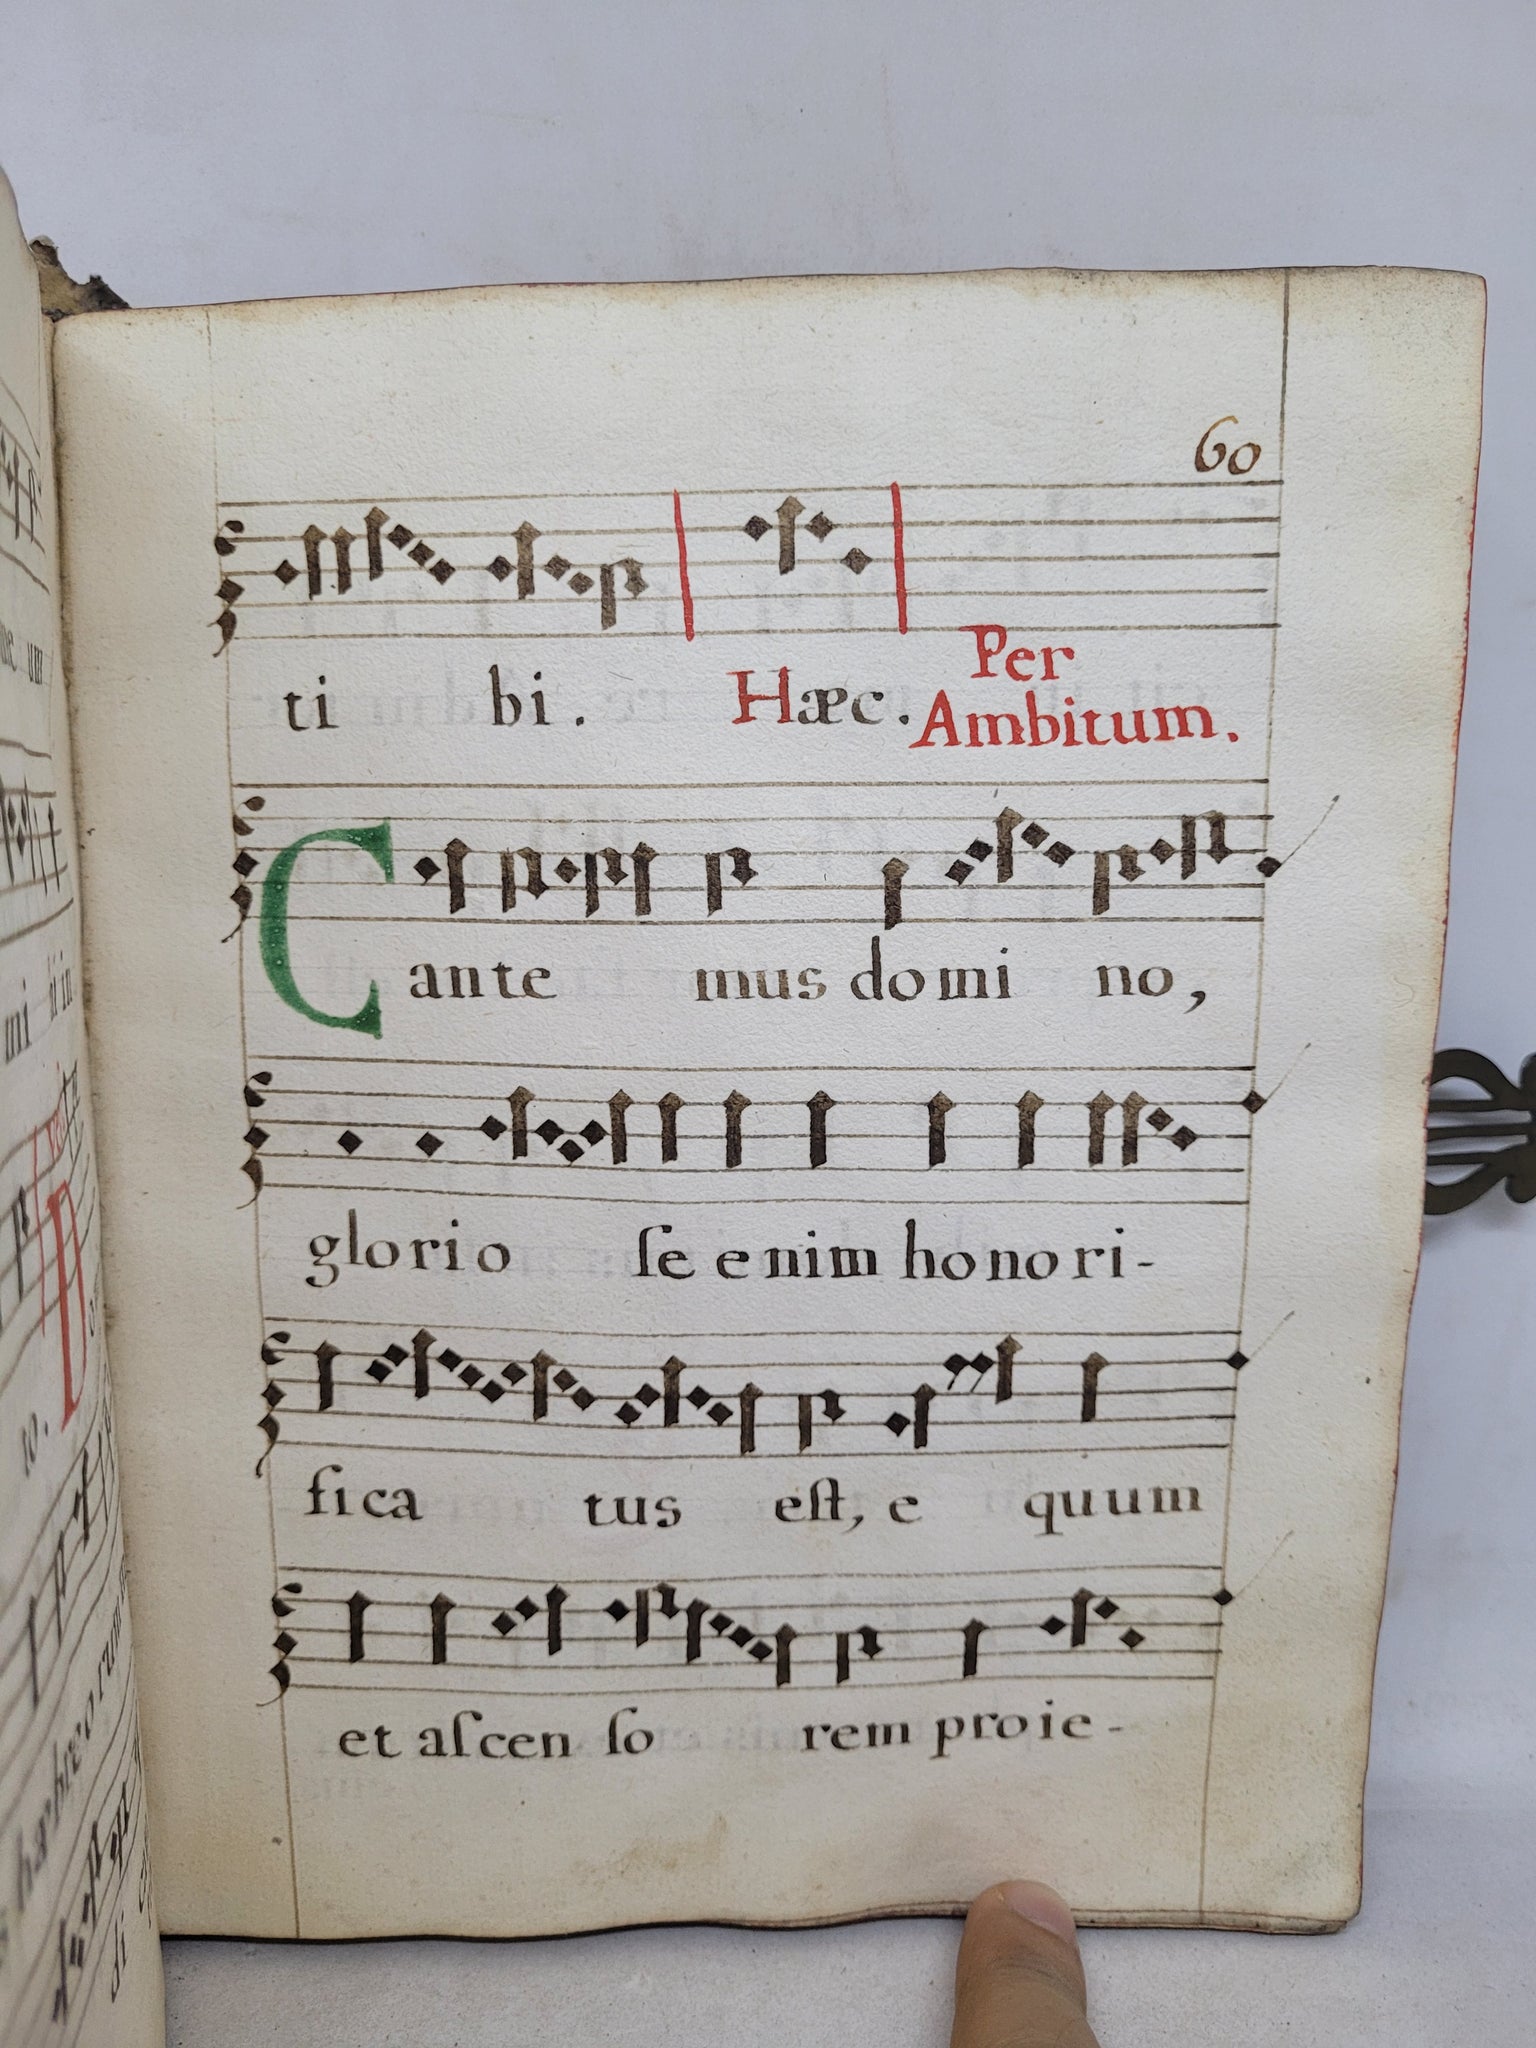 60
ti bi. Hæc. Per
Ambitum.
Cante mus domi no,
glorio ſe enim honori-
fica tus eſt, e quum
et aſcen ſo rem proie-